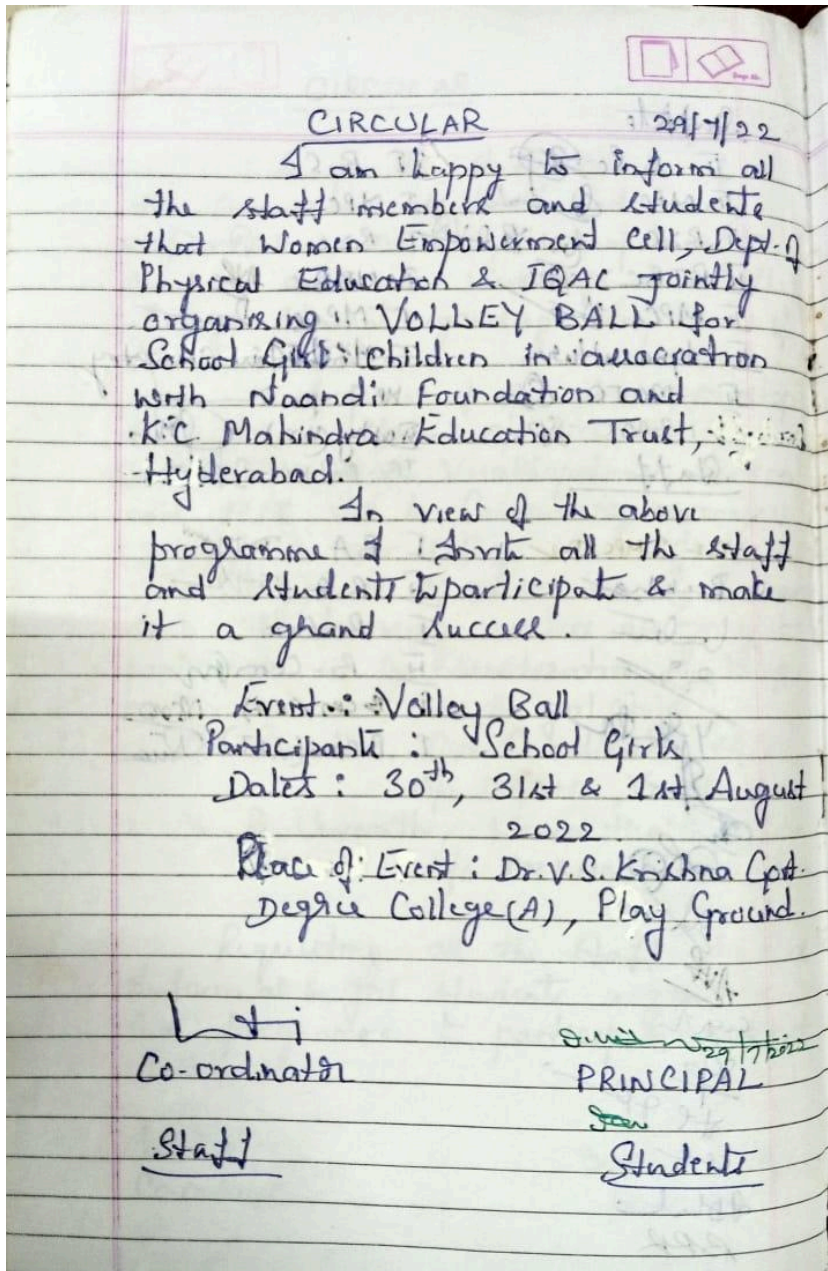 CIRCULAR 29/7/22
I am happy to inform all
the staff members and students
that Women Empowerment Cell, Dept. of
Physical Education & IQAC Jointly
organising VOLLEY BALL for
School Girl children in association
with Naandi Foundation and
K.C. Mahindra Education Trust,
Hyderabad.
In view of the above
programme I invite all the staff
and students to participate & make
it a grand success.
Event : Volley Ball
Participants : School Girls
Dates : 30th, 31st & 1st August
2022
Place of Event : Dr. V.S. Krishna Govt.
Degree College (A), Play Ground.
29/7/2022
Co-ordinator PRINCIPAL
Staff Students